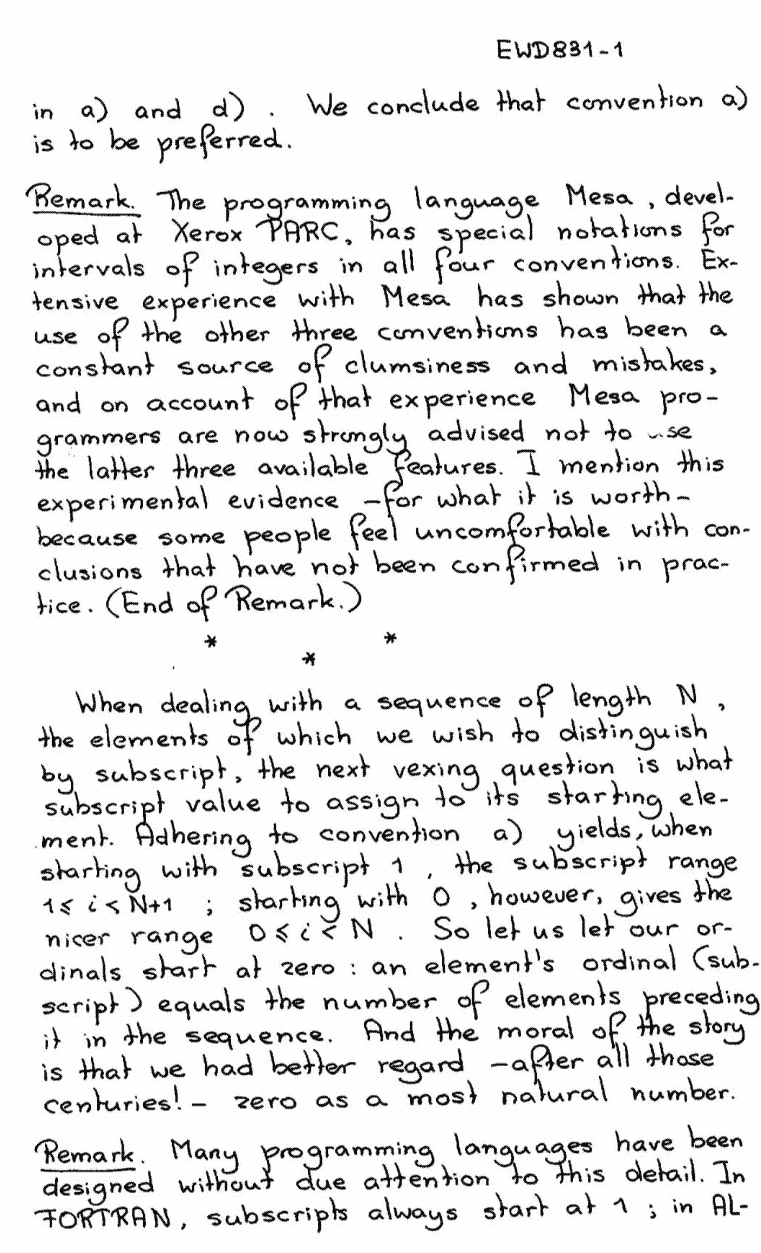 EWD831-1
in a) and d) . We conclude that convention a)
is to be preferred.
Remark. The programming language Mesa, devel-
oped at Xerox PARC, has special notations for
intervals of integers in all four conventions. Ex-
tensive experience with Mesa has shown that the
use of the other three conventions has been a
constant source of clumsiness and mistakes,
and on account of that experience Mesa pro-
grammers are now strongly advised not to use
the latter three available features. I mention this
experimental evidence -for what it is worth-
because some people feel uncomfortable with con-
clusions that have not been confirmed in prac-
tice. (End of Remark.)
* * *
When dealing with a sequence of length N ,
the elements of which we wish to distinguish
by subscript, the next vexing question is what
subscript value to assign to its starting ele-
ment. Adhering to convention a) yields, when
starting with subscript 1 , the subscript range
1≤ i < N+1 ; starting with 0 , however, gives the
nicer range 0 ≤ i < N . So let us let our or-
dinals start at zero : an element's ordinal (sub-
script) equals the number of elements preceding
it in the sequence. And the moral of the story
is that we had better regard -after all those
centuries!- zero as a most natural number.
Remark. Many programming languages have been
designed without due attention to this detail. In
FORTRAN, subscripts always start at 1 ; in AL-